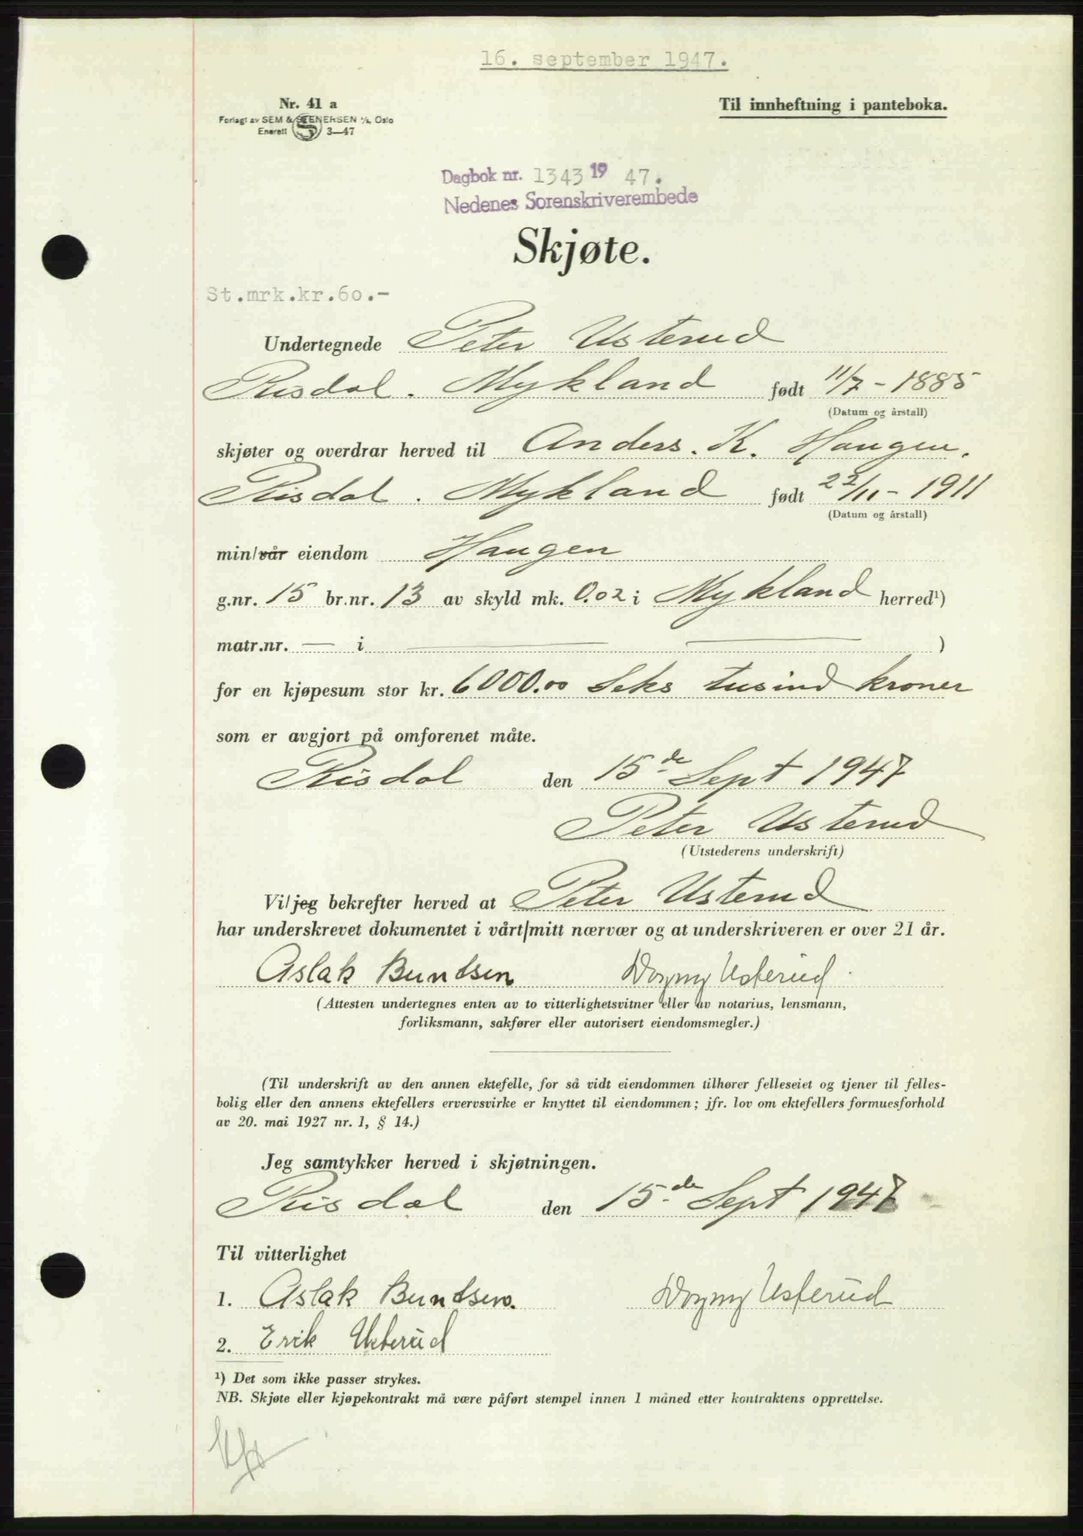 16. september 1947.
Nr. 41 a
Til innheftning i panteboka.
Forlagt av SEM & STENERSEN A/S, Oslo
Enerett 3—47
Dagbok nr. 1343 19 47.
Nedenes Sorenskriverembede
Skjøte.
St.mrk.kr.60.-
Undertegnede Peter Usterud
Risdal. Mykland født 11/7 - 1885
(Datum og årstall)
skjøter og overdrar herved til Anders. K. Haugen.
Risdal. Mykland født 22/11 - 1911
(Datum og årstall)
min/vår eiendom Haugen
g.nr. 15 br.nr. 13 av skyld mk. 0.02 i Mykland herred¹)
matr.nr. — i — — )
for en kjøpesum stor kr. 6000.00 Seks tusind kroner
som er avgjort på omforenet måte.
Risdal den 15de Sept 1947
Peter Usterud
(Utstederens underskrift)
Vi/jeg bekrefter herved at Peter Usterud
har underskrevet dokumentet i vårt/mitt nærvær og at underskriveren er over 21 år.
Aslak Bundsen Dagny Usterud.
(Attesten undertegnes enten av to vitterlighetsvitner eller av notarius, lensmann,
forliksmann, sakfører eller autorisert eiendomsmegler.)
(Til underskrift av den annen ektefelle, for så vidt eiendommen tilhører felleseiet og tjener til felles-
bolig eller den annens ektefellers ervervsvirke er knyttet til eiendommen; jfr. lov om ektefellers formuesforhold
av 20. mai 1927 nr. 1, § 14.)
Jeg samtykker herved i skjøtningen.
Risdal den 15de Sept 1947
Til vitterlighet
1. Aslak Bundsen. Dagny Usterud
2. Erik Usterud
¹) Det som ikke passer strykes.
NB. Skjøte eller kjøpekontrakt må være påført stempel innen 1 måned etter kontraktens opprettelse.